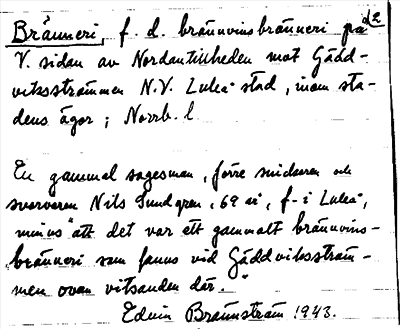 d2
Bränneri, f. d. brännvinsbränneri på
V. sidan av Nordantillheden mot Gädd-
viksströmmen N.V. Luleå stad, inom sta-
dens ägor; Norrb. l.
En gammal sagesman, förre snickaren och
svarvaren Nils Sundgren, 69 år, f. i Luleå,
minns "att det var ett gammalt brännvins-
bränneri som fanns vid Gäddviksström-
men ovan vitsanden där."
Edvin Brännström 1943.